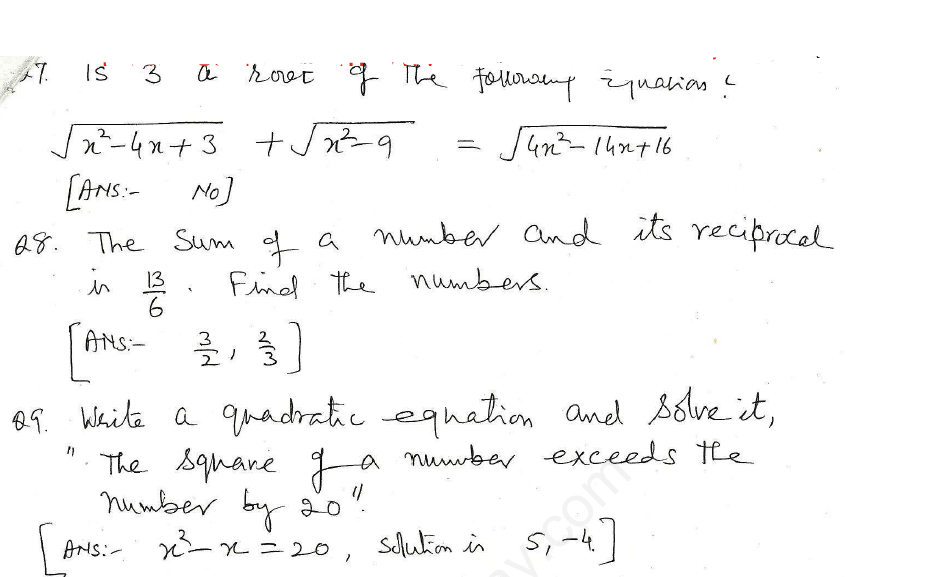 27. Is 3 a root of the following Equation?
√(x²-4x+3) + √(x²-9) = √(4x²-14x+16)
[ANS:- No]
Q8. The Sum of a number and its reciprocal
is 13/6. Find the numbers.
[ANS:- 3/2, 2/3]
Q9. Write a quadratic equation and solve it,
". The square of a number exceeds the
number by 20".
[ANS:- x²-x=20, solution is 5, -4.]